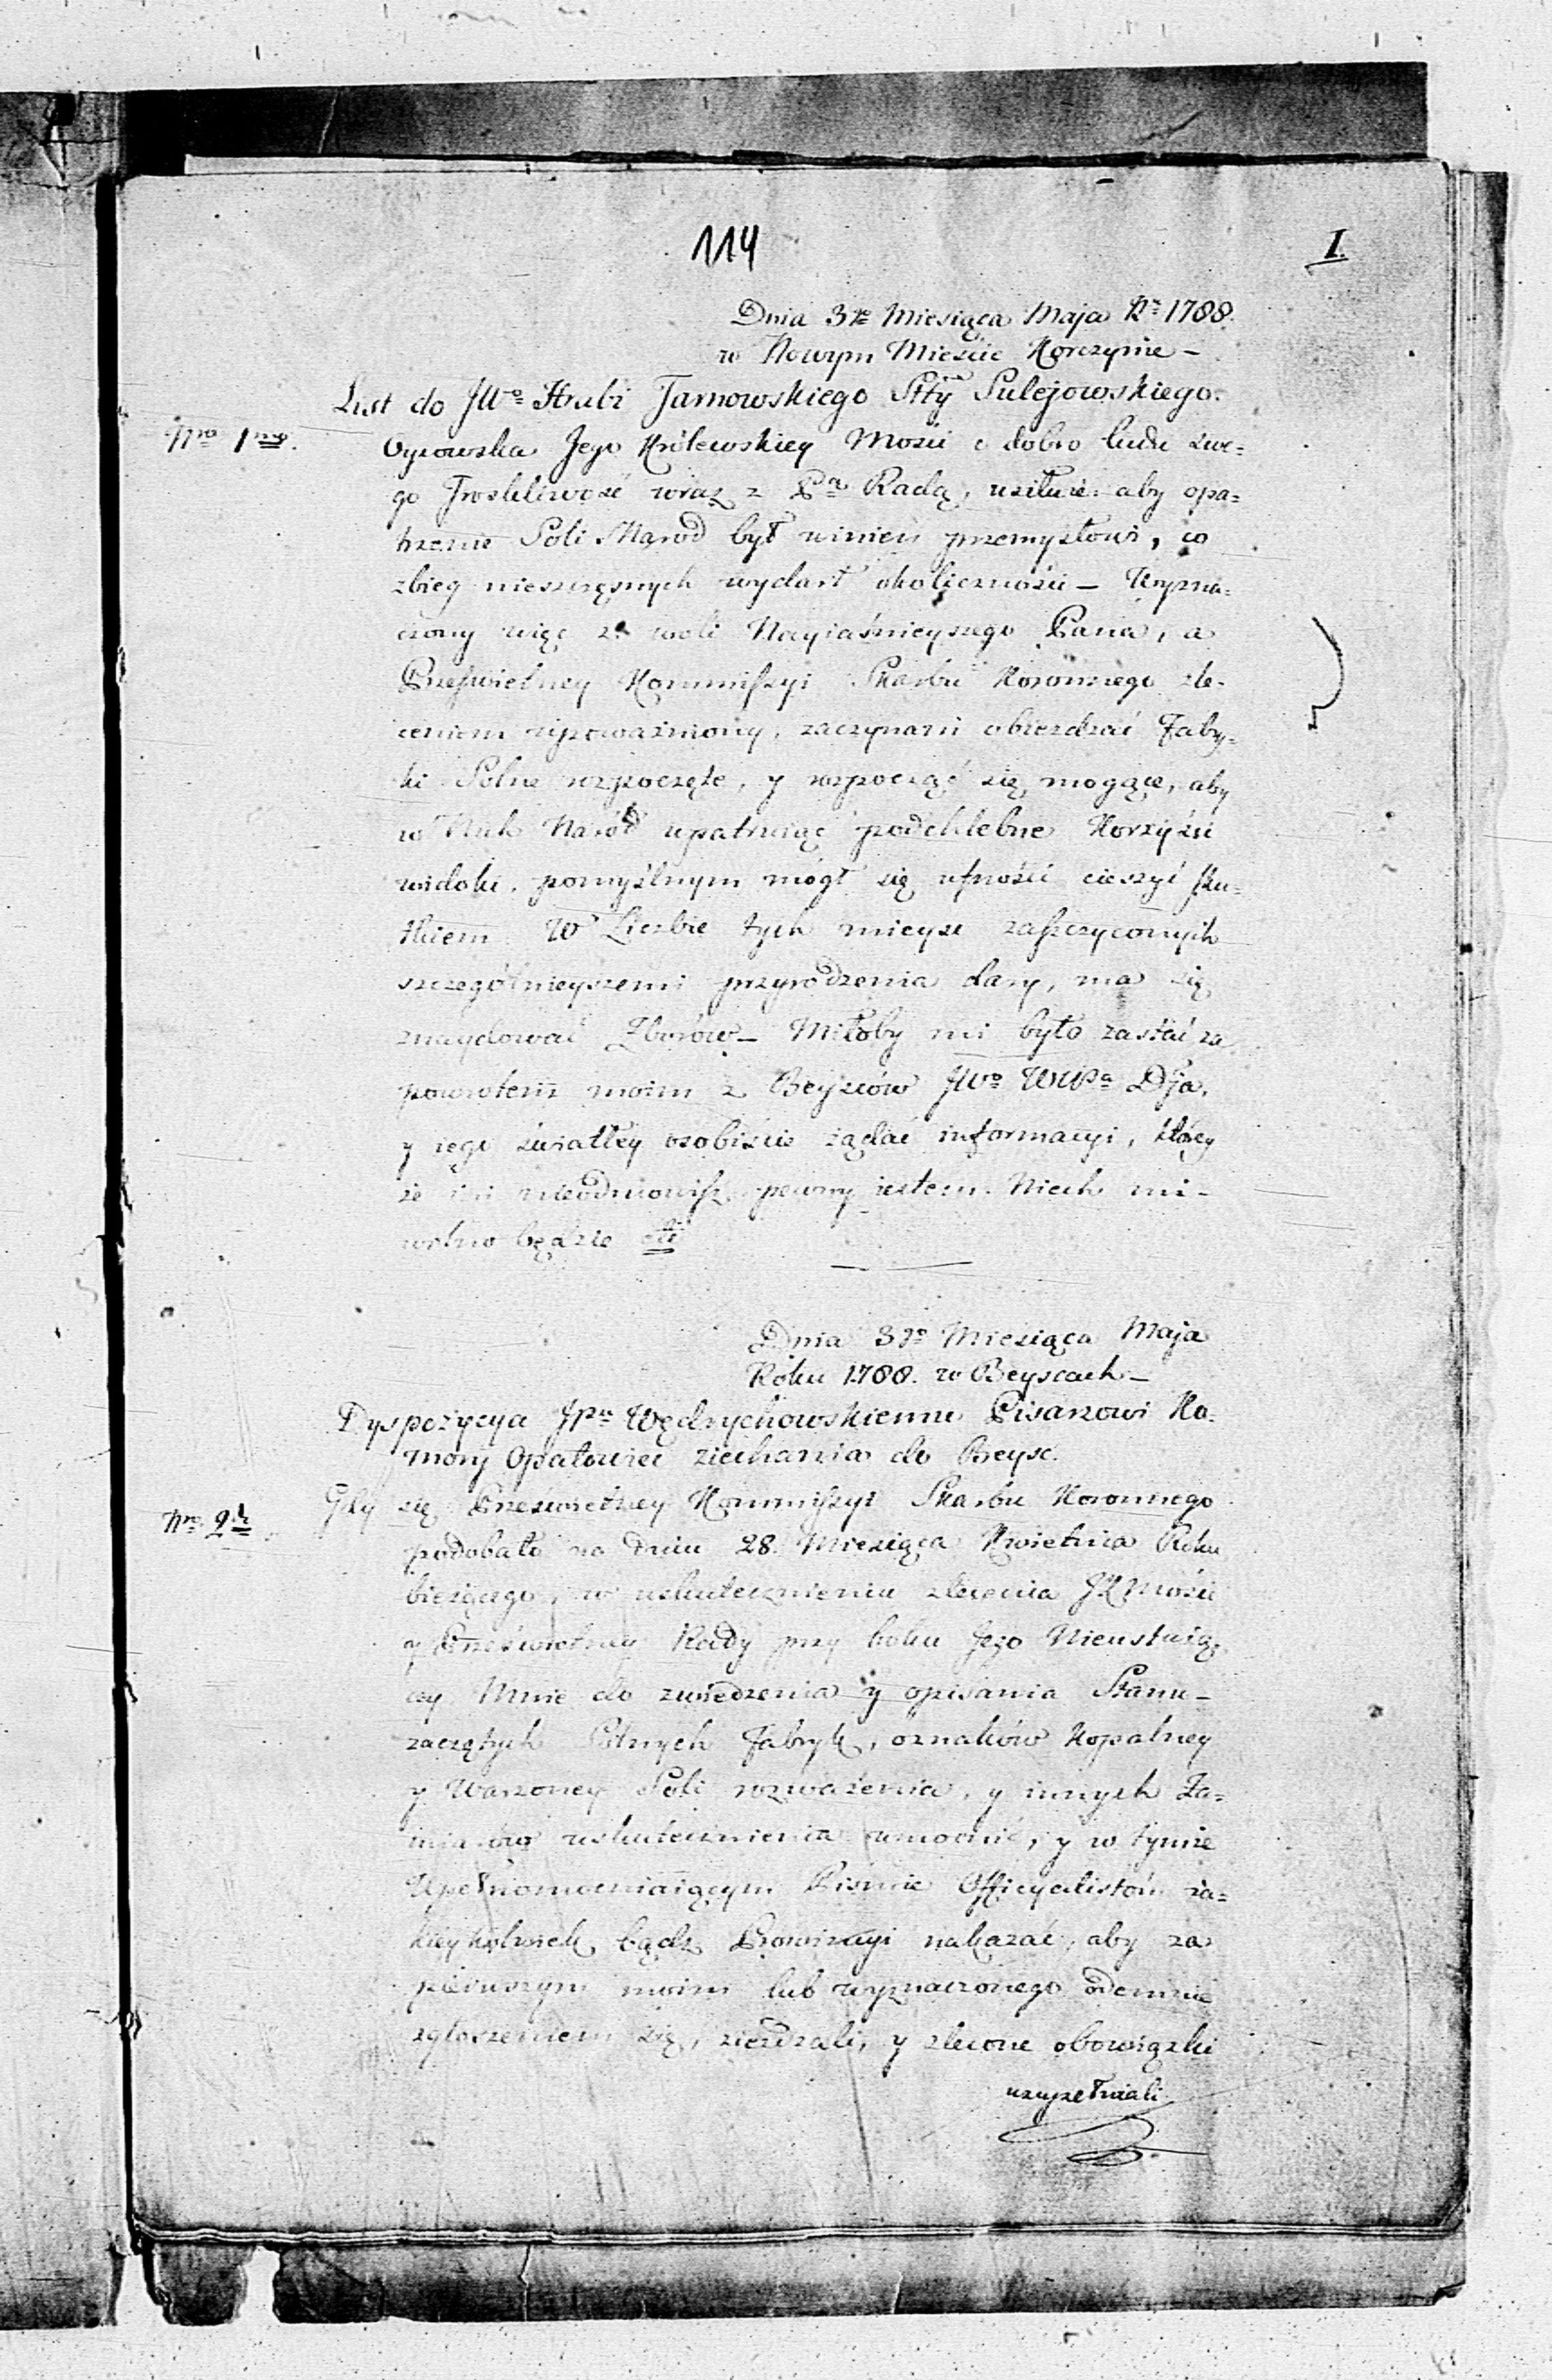 114
I.
Dnia 3go Miesiąca Maja Ru 1788.
w Nowym Mieście Korczynie –
List do JWo Hrabi Tarnowskiego Stty Sulejowskiego.
Nro 1mo.
Oycowska Jego Królewskiey Mości o dobro ludu swe=
go Troskliwość wraz z Pa Radą, usiłuie aby opa=
trzenie Soli Naród był winien przemysłowi, co
zbieg nieszczęsnych wydarł okoliczności – Wyzna=
czony więc z woli Nayiaśnieyszego Pana, a
Prześwietney Kommissyi Skarbu Koronnego zle=
ceniem upoważniony, zaczynam obiezdzać Faby=
ki Solne rozpoczęte, y rozpocząć się mogące, aby
w Nich Naród upatruiąc podchlebne Korzyści
widoki, pomyślnym mógł się ufności cieszyć sku=
tkiem W Liczbie tych mieysc zaszczyconych
szczegolnieyszemi przyrodzenia dary, ma się
znaydować Zborów – Miłoby mi było zastać za
powrotem moim z Beyszów JWo WMPa Dja,
y iego światłey osobiście żądać informacyi, którey
że mi nieodmowisz pewny iestem. Niech mi –
wolno będzie etc
Dnia 3go Miesiąca Maja
Roku 1788. w Beyscach –
Dyspozycya Jpu Wędrychowskiemu Pisarzowi Ko=
mory Opatowiec ziechania do Beysc.
Nro 2do
Gdy się Prześwietney Kommissyi Skarbu Koronnego
podobało na dniu 28. Miesiąca Kwietnia Roku
bieżącego, w uskutecznieniu zlecenia JKMości
y Prześwietney Rady przy boku Jego Nieustaią=
cey Mnie do zwiedzenia y opisania Stanu –
zaczętych Solnych Fabryk, oznaków Kopalney
y Warzoney Soli rozważenia, y innych Za=
miarów uskutecznienia umocnić, y w tymże
Upełnomocniaiącym Piśmie Officyalistom ia=
kieykolwiek bądź Prowincyi nakazać, aby za
pierwszym moim lub wyznaczonego odemnie
zgłoszeniem się, ziezdzali, y zlecone obowiązki
uzupełniali